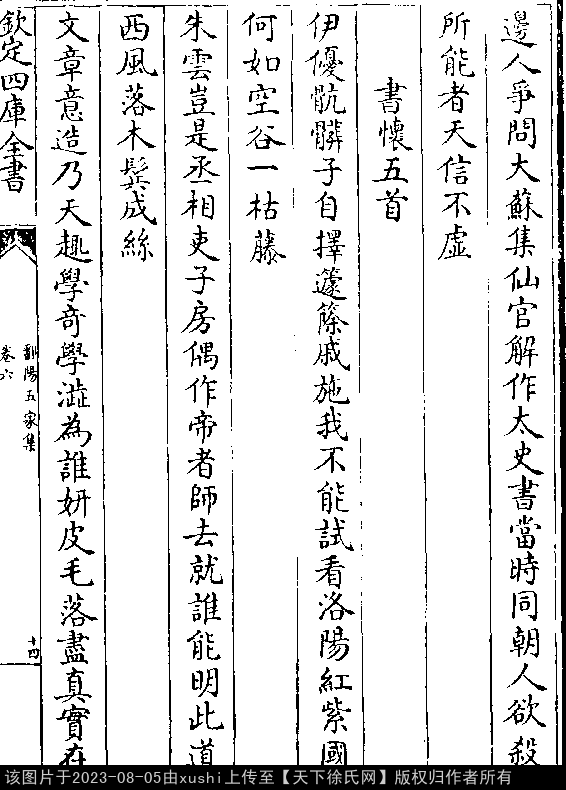 邊人爭問大蘇集仙官解作太史書當時同朝人欲殺
所能者天信不虛
書懷五首
伊優骯髒子自擇籧篨戚施我不能試看洛陽紅紫國
何如空谷一枯藤
朱雲豈是丞相吏子房偶作帝者師去就誰能明此道
西風落木鬂成絲
文章意造乃天趣學奇學澁為誰妍皮毛落盡真實在
欽定四庫全書
鄱陽五家集
卷六
十四
该图片于2023-08-05由xushi上传至【天下徐氏网】版权归作者所有